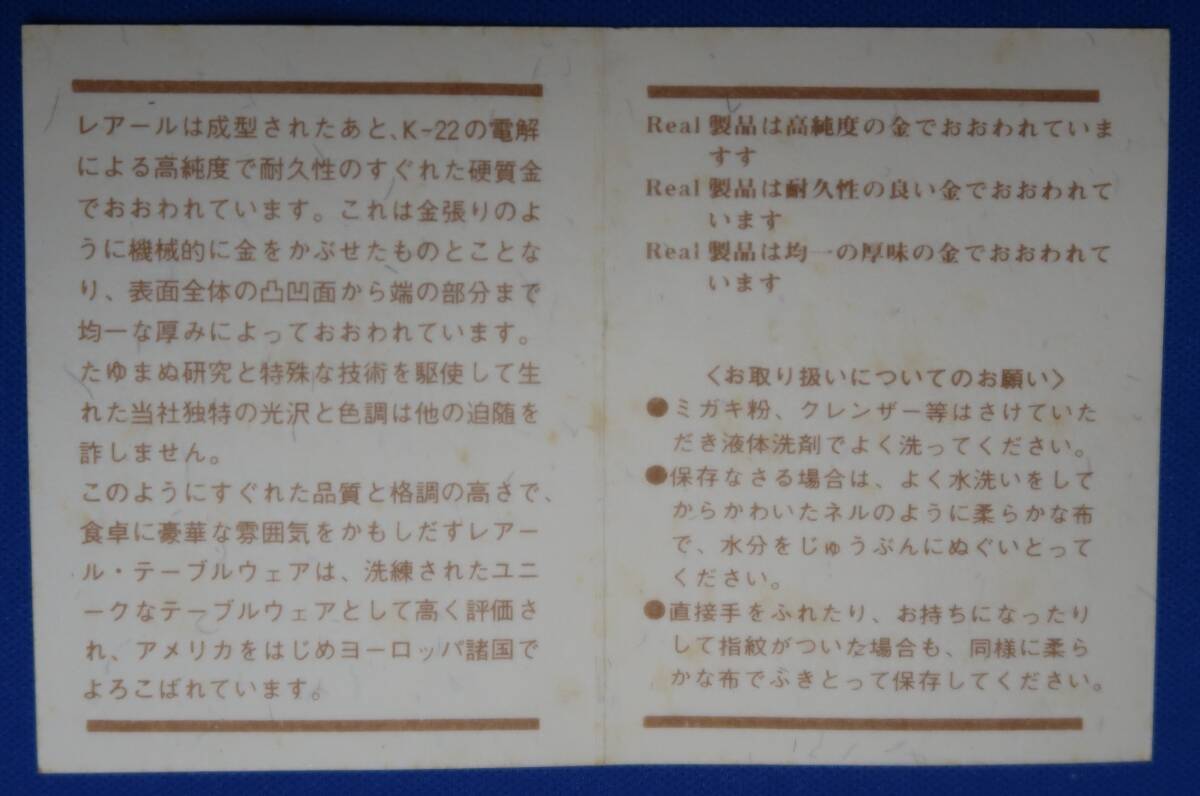 レアールは成型されたあと、K-22の電解
による高純度で耐久性のすぐれた硬質金
でおおわれています。これは金張りのよ
うに機械的に金をかぶせたものとことな
り、表面全体の凸凹面から端の部分まで
均一な厚みによっておおわれています。
たゆまぬ研究と特殊な技術を駆使して生
れた当社独特の光沢と色調は他の迫随を
詐しません。
このようにすぐれた品質と格調の高さで、
食卓に豪華な雰囲気をかもしだずレアー
ル・テーブルウェアは、洗練されたユニ
ークなテーブルウェアとして高く評価さ
れ、アメリカをはじめヨーロッパ諸国で
よろこばれています。
Real 製品は高純度の金でおおわれていま
すす
Real 製品は耐久性の良い金でおおわれて
います
Real 製品は均一の厚味の金でおおわれて
います
〈お取り扱いについてのお願い〉
●ミガキ粉、クレンザー等はさけていた
だき液体洗剤でよく洗ってください。
●保存なさる場合は、よく水洗いをして
からかわいたネルのように柔らかな布
で、水分をじゅうぶんにぬぐいとって
ください。
●直接手をふれたり、お持ちになったり
して指紋がついた場合も、同様に柔ら
かな布でぶきとって保存してください。